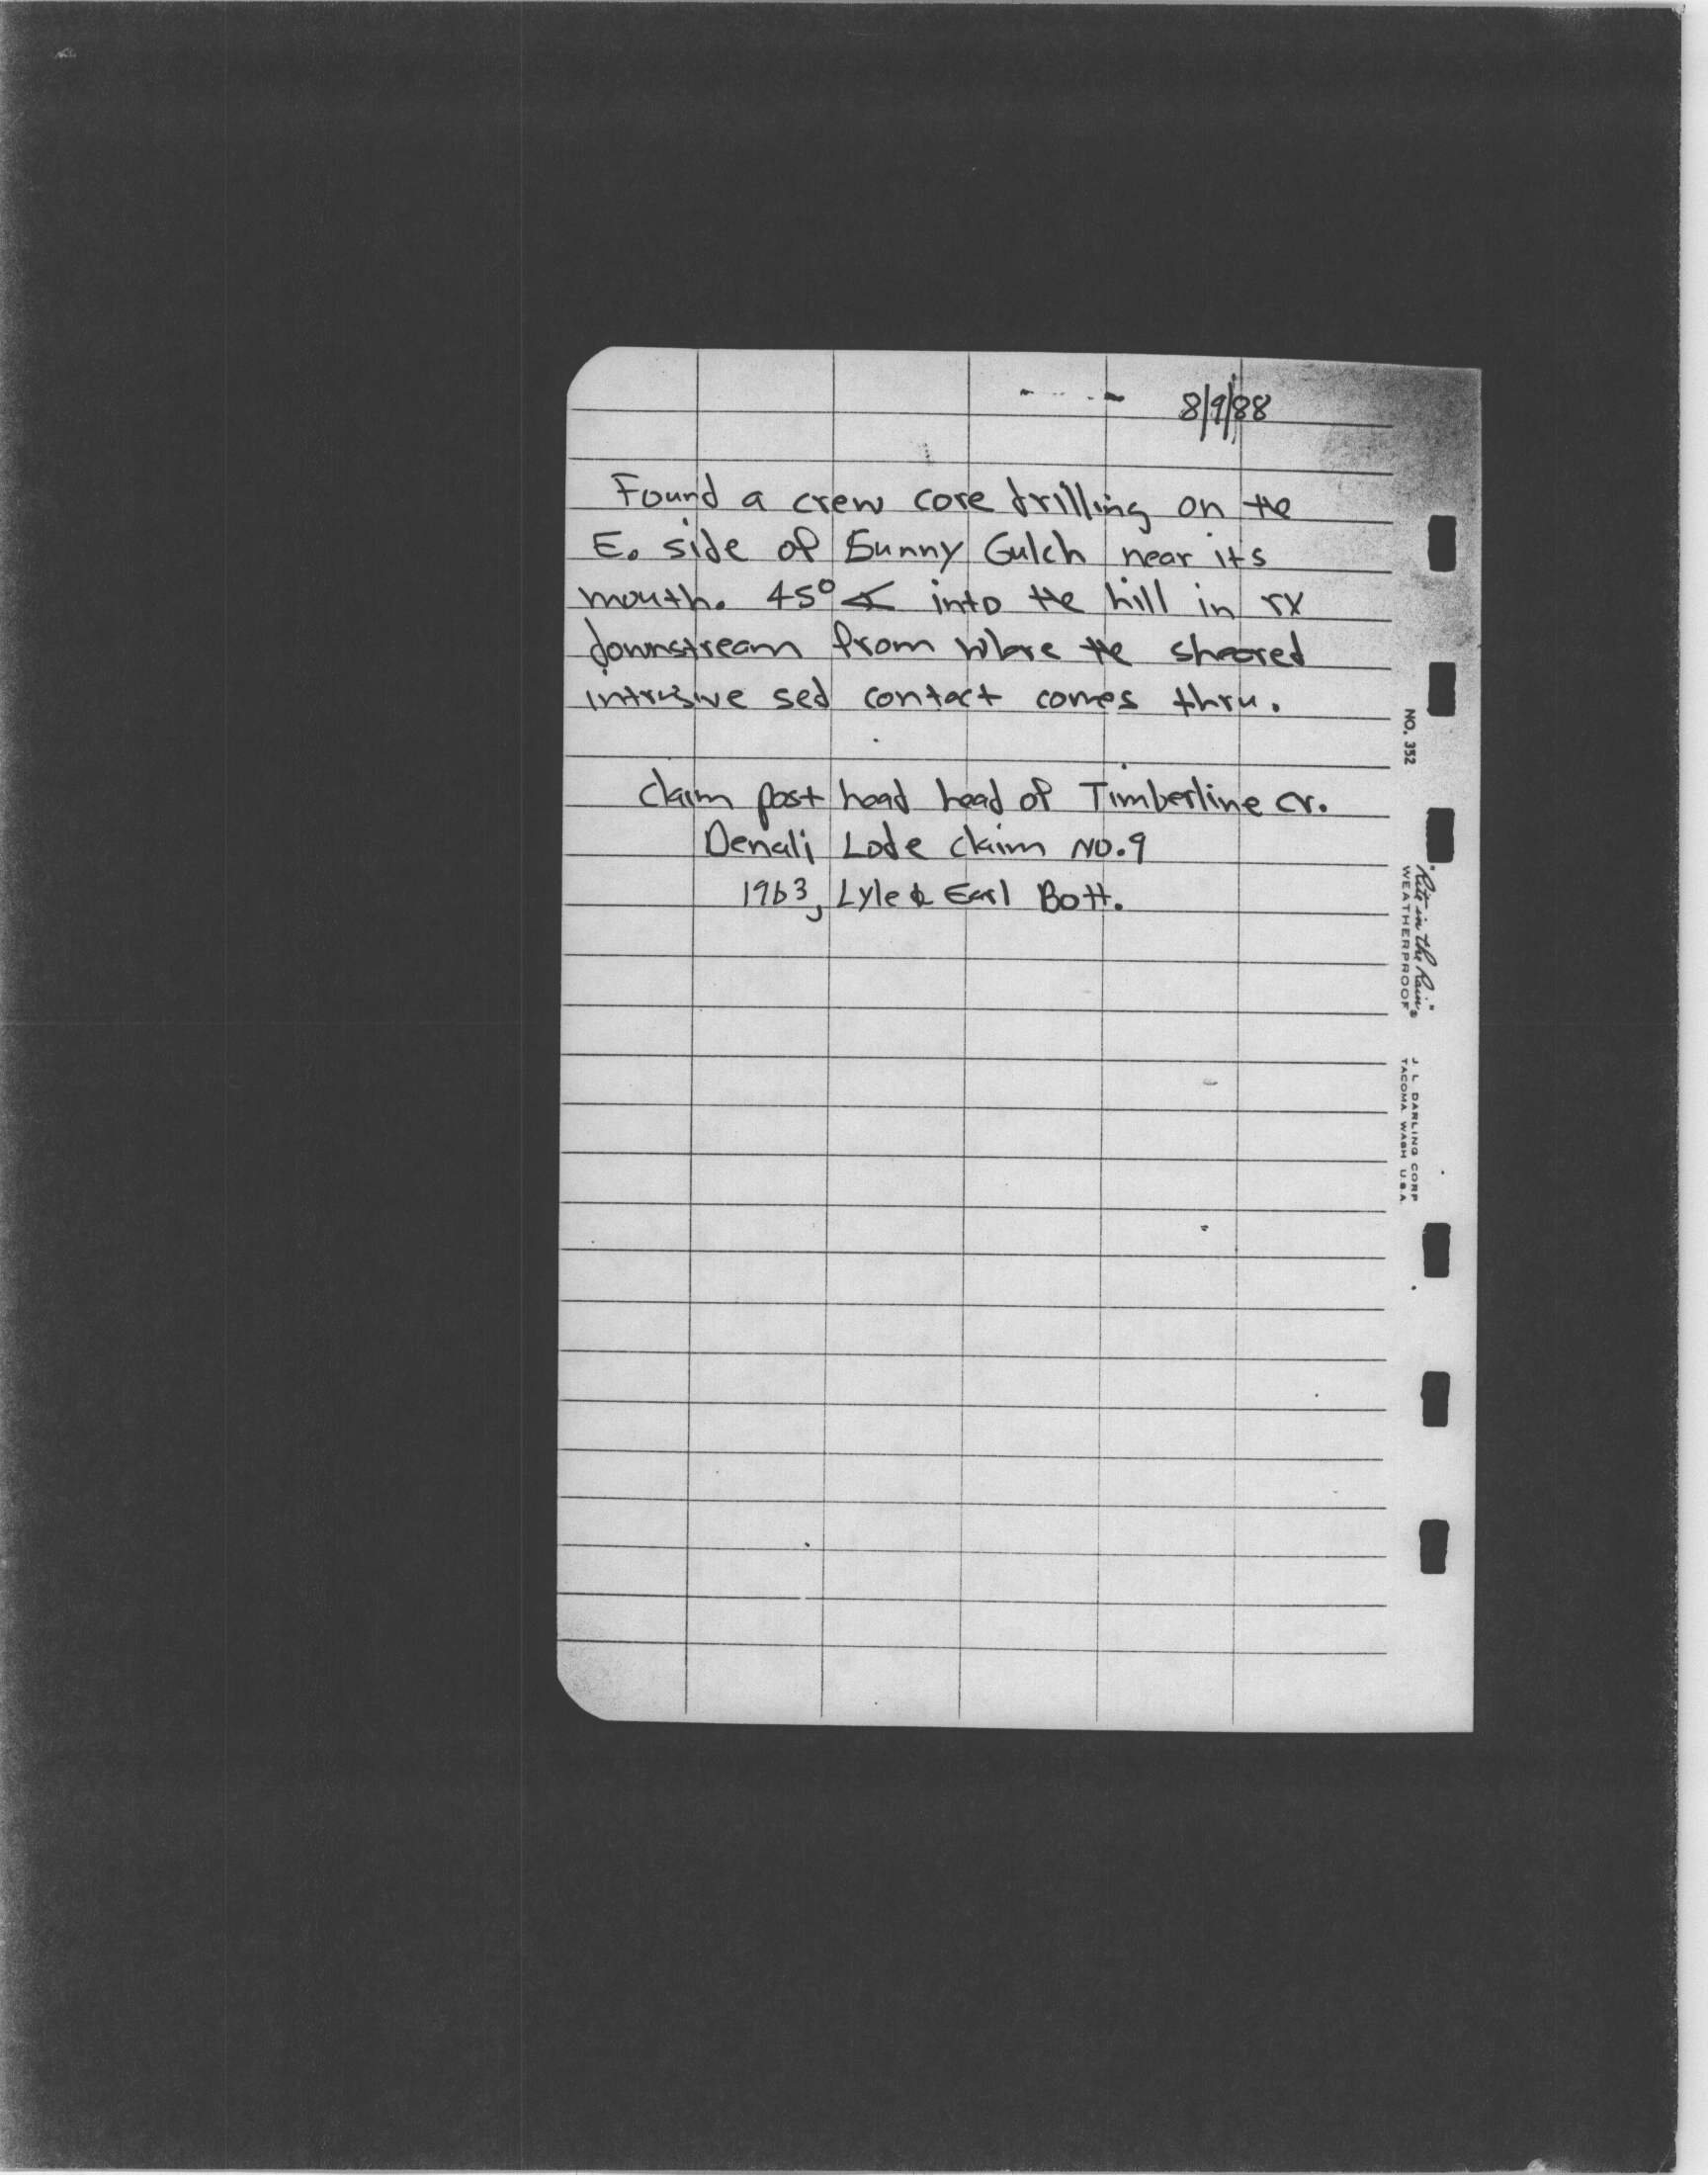 8/9/88
Found a crew core drilling on the
E. side of Sunny Gulch near its
mouth. 45° ∡ into the hill in rx
downstream from where the sheared
intrusive sed contact comes thru.
Claim post head head of Timberline cr.
Denali Lode claim NO.9
1963, Lyle & Earl Bott.
NO. 352
"Rite in the Rain"®
WEATHERPROOF
J. L. DARLING CORP
TACOMA, WASH U.S.A.